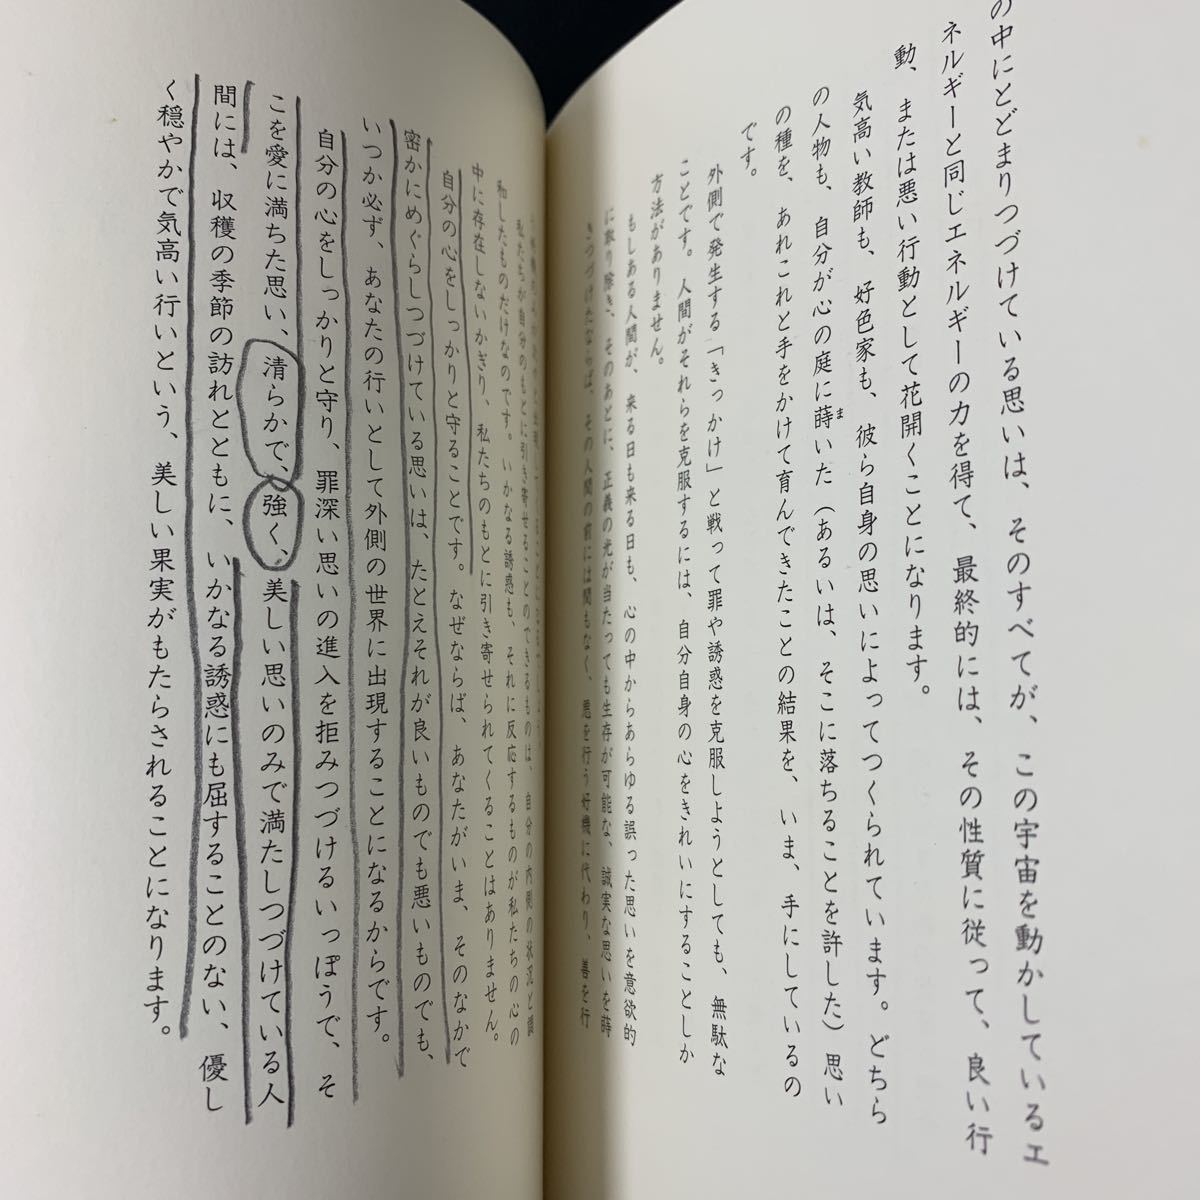 の中にとどまりつづけている思いは、そのすべてが、この宇宙を動かしているエ
ネルギーと同じエネルギーの力を得て、最終的には、その性質に従って、良い行
動、または悪い行動として花開くことになります。
気高い教師も、好色家も、彼ら自身の思いによってつくられています。どちら
の人物も、自分が心の庭に蒔いた（あるいは、そこに落ちることを許した）思い
ま
の種を、あれこれと手をかけて育んできたことの結果を、いま、手にしているの
です。
外側で発生する「きっかけ」と戦って罪や誘惑を克服しようとしても、無駄な
ことです。人間がそれらを克服するには、自分自身の心をきれいにすることしか
方法がありません。
もしある人間が、来る日も来る日も、心の中からあらゆる誤った思いを意欲的
に取り除き、そのあとに、正義の光が当たっても生存が可能な、誠実な思いを蒔
きつづけたならば、その人間の前には間もなく、悪を行う好機に代わり、善を行
私たちが自分のもとに引き寄せることのできるものは、自分の内側の状況と調
和したものだけなのです。いかなる誘惑も、それに反応するものが私たちの心の
中に存在しないかぎり、私たちのもとに引き寄せられてくることはありません。
自分の心をしっかりと守ることです。なぜならば、あなたがいま、そのなかで
密かにめぐらしつづけている思いは、たとえそれが良いものでも悪いものでも、
いつか必ず、あなたの行いとして外側の世界に出現することになるからです。
自分の心をしっかりと守り、罪深い思いの進入を拒みつづけるいっぽうで、そ
こを愛に満ちた思い、清らかで、強く、美しい思いのみで満たしつづけている人
間には、収穫の季節の訪れとともに、いかなる誘惑にも屈することのない、優し
く穏やかで気高い行いという、美しい果実がもたらされることになります。